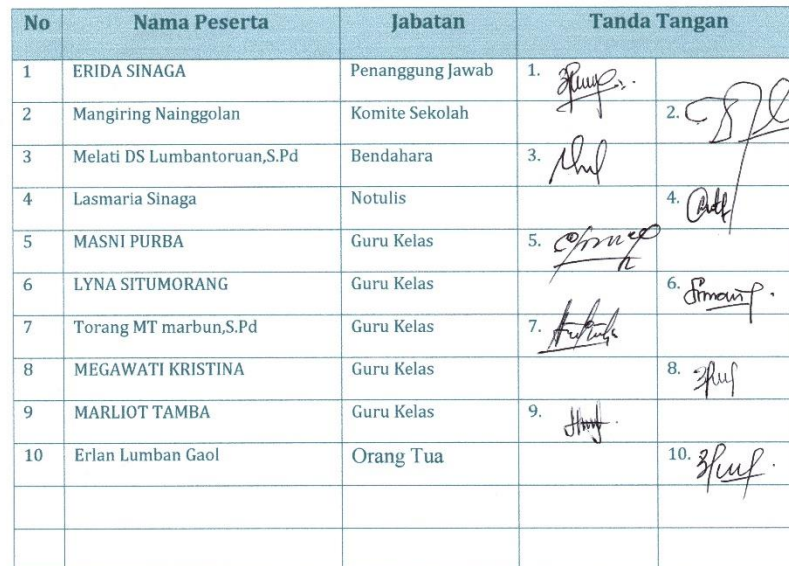 No Nama Peserta Jabatan Tanda Tangan
1 ERIDA SINAGA Penanggung Jawab 1.
2 Mangiring Nainggolan Komite Sekolah 2.
3 Melati DS Lumbantoruan,S.Pd Bendahara 3.
4 Lasmaria Sinaga Notulis 4.
5 MASNI PURBA Guru Kelas 5.
6 LYNA SITUMORANG Guru Kelas 6.
7 Torang MT marbun,S.Pd Guru Kelas 7.
8 MEGAWATI KRISTINA Guru Kelas 8.
9 MARLIOT TAMBA Guru Kelas 9.
10 Erlan Lumban Gaol Orang Tua 10.